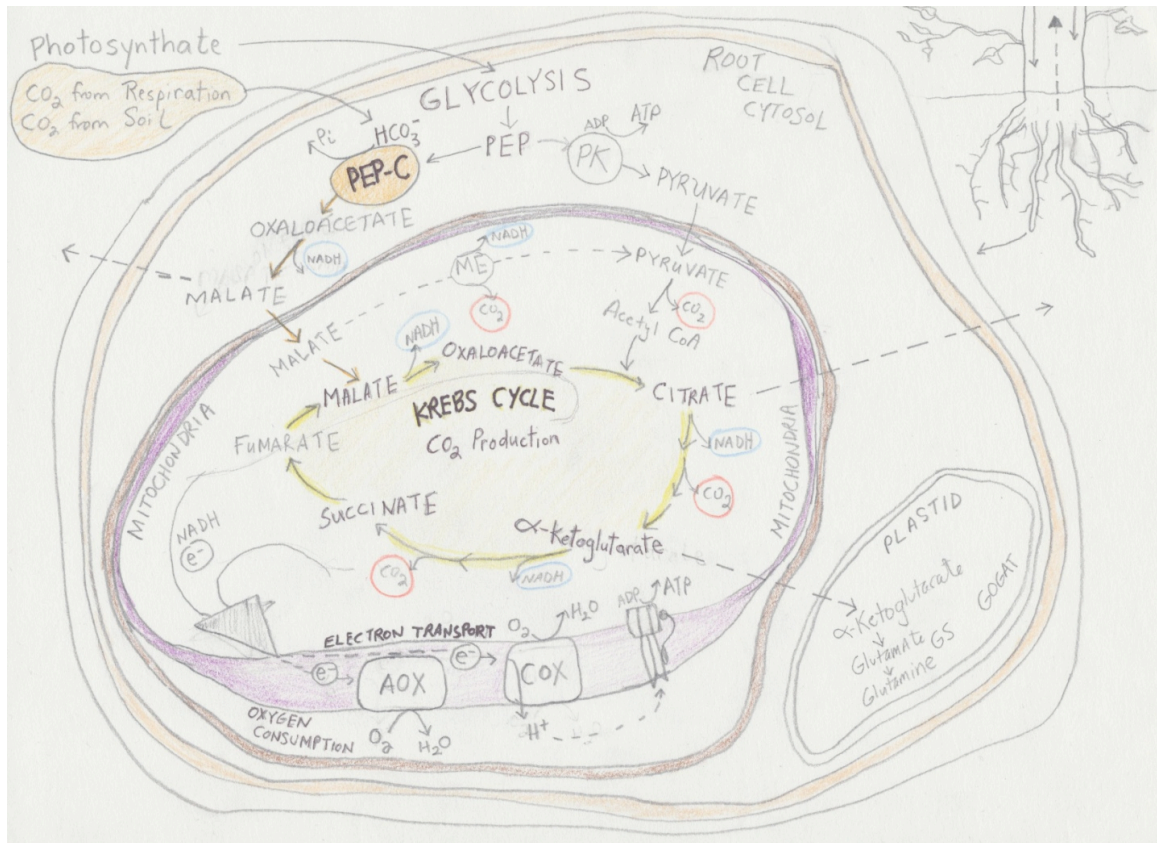 Photosynthate
CO2 from Respiration
CO2 from Soil
ROOT
CELL
CYTOSOL
GLYCOLYSIS
Pi
HCO3-
PEP-C
PEP
ADP
ATP
PK
PYRUVATE
OXALOACETATE
NADH
MALATE
MALATE
ME
NADH
CO2
PYRUVATE
CO2
Acetyl CoA
NADH
OXALOACETATE
MALATE
CITRATE
KREBS CYCLE
CO2 Production
FUMARATE
NADH
CO2
SUCCINATE
α-Ketoglutarate
CO2
NADH
MITOCHONDRIA
MITOCHONDRIA
NADH
e-
ELECTRON TRANSPORT
O2
H2O
ADP
ATP
e-
e-
AOX
COX
OXYGEN
CONSUMPTION
O2
H2O
H+
PLASTID
α-Ketoglutarate
GOGAT
Glutamate GS
Glutamine